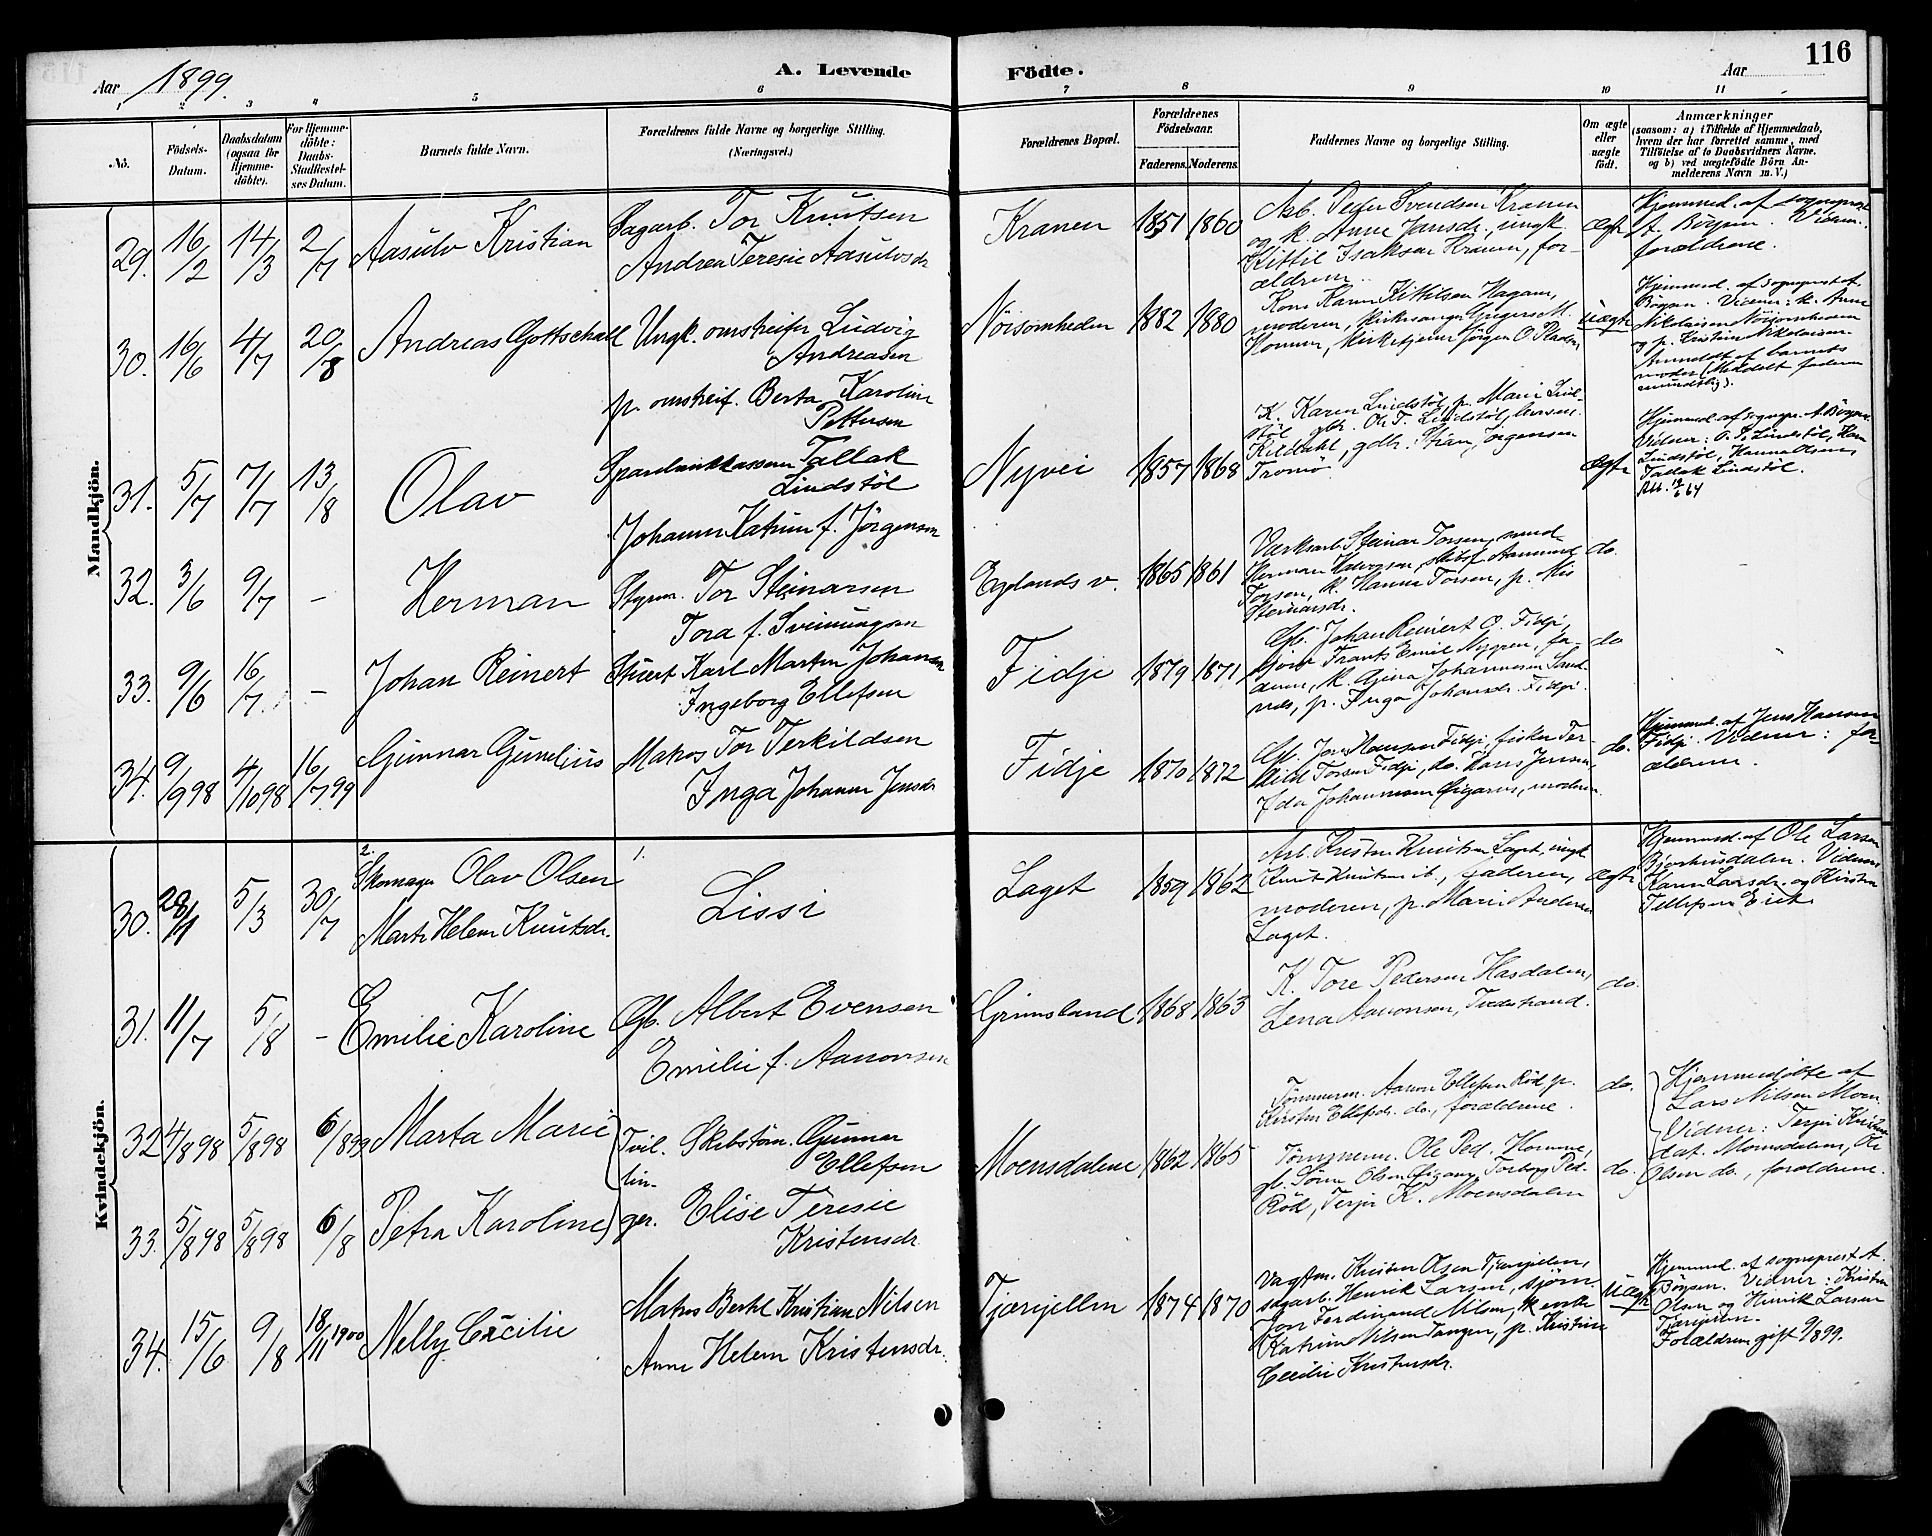 116
Aar 1899.
A. Levende Födte.
Aar
1 2 3 4 5 6 7 8 9 10 11
No.
Födsels-Datum.
Daabsdatum (ogsaa for Hjemme-döbte).
For Hjemme-döbte: Daabs-Stadfæstel-ses Datum.
Barnets fulde Navn.
Forældrenes fulde Navne og borgerlige Stilling. (Næringsvei.)
Forældrenes Bopæl.
Forældrenes Födselsaar.
Faderens. Moderens.
Faddernes Navne og borgerlige Stilling.
Om ægte eller uægte födt.
Anmærkninger
(saasom: a) i Tilfælde af Hjemmedaab, hvem der har forrettet samme, med Tilföielse af to Daabsvidners Navne, og b) ved uægtefödte Börn An-melderens Navn m. V.)
Mandkjön.
29. 16/2 14/3 2/7 Aasulv Kristian
Sagarb. Tor Knutsen
Andrea Teresie Aasulvsdr
Kranen 1851 1860
Arb. Peder Svendsen Kranen
og k. Anne Jansdr., ungk.
Kittil Isaksen Kranen, for-
ældrene.
Ægte
Hjemmed. af sogneprest
A. Börsen. Vidner:
forældrene.
30. 16/6 4/7 20/8 Andreas Gottschall
Ungk. omstreifer Ludvig
Andreasen
p. omstreif. Berta Karoline
Pettersen
Nöisomheden 1882 1880
Kone Karen Kittilsen Hagane,
moderen, kirkesanger Grigers M.
Homme, kirketjener Jörgen O. Pladsen
Uægte
Hjemmed. af sogneprest A.
Börsen. Vidner: k. Anne
Nikolaisen Nöisomheden
og p. Kristine Nikolaisen.
Anmeldt af barnets
moder (Meddelt faderen
mundtlig).
31. 5/7 7/7 13/8 Olav
Sparebankkasserer Tallak
Lindstöl
Johanne Katrine f. Jörgensen
Nyvei 1857 1868
K. Karen Lindstöl, p. Marie Lind-
stöl, gbr. Ole T. Lindstöl, lensm.
Kildahl, gdbr. Stian Jörgensen
Tromö
Ægte
Hjemmed. af sognepr. A. Börsen.
Vidner: O. T. Lindstöl, Karen
Lindstöl, Hanna Olsen,
Tallak Lindstöl.
32. 3/6 9/7 - Herman
Styrm. Tor Steinarsen
Tora f. Sveinungsen
Eglands v. 1865 1861
Værksarb. Steinar Torsen, smed
Herman Halvorsen, skibsf. Aanund
Torsen, k. Hanna Torsen, p. Mis
Steinarsdr.
do.
33. 9/6 16/7. - Johan Reinert
Stuert Karl Martin Johansen
Ingeborg Ellefsen
Fidje 1879 1871
Gb. Johan Reinert O. Fidje,
sjöm. Frants Emil Nygren, fa-
deren, k. Gjina Johannesen Sand-
nes, p. Inga Johansdr. Fidje.
do
34. 9/9 98 4/10 98 16/7 99 Gunnar Gunelius
Matros Tor Terkildsen
Inga Johanne Jensdr
Fidje 1870 1872
Gb. Jens Hansen Fidje, fisker Ter-
kild Torsen Fidje, do. Hans Jensen,
Ida Johannesen Gigaren, moderen.
do.
Hjemmed. af Jens Hansen
Fidje. Vidner: for-
ældrene.
Kvindekjön.
30. 28/1 5/3 30/7
2. Skomager Olav Olsen
Marte Helene Knutsdr.
1. Lissi
Laget 1859 1862
Arb. Kristen Knutsen Laget, ungk.
Knut Knutsen ib., faderen,
moderen, p. Marie Andersen
Laget.
Ægte
Hjemmed. af Ole Larsen
Bjorhusdalen. Vidner:
Karen Larsdr. og Kirsten
Tellefsen Eiet.
31. 11/7 5/8 - Emilie Karoline
Gb. Albert Evensen
Emilie f. Aanonsen
Grimsland 1868 1863
K. Tore Pedersen Hasdalen,
Lena Aanonsen, Tvedestrand.
do.
32 4/8 98 5/8 98 6/8 99 Marta Marie
Tvil-lin-ger.
Skibstöm. Gunnar
Ellefsen
Elise Teresie
Kristensdr.
Moensdalene 1862 1865
Tömmerm. Aanon Ellefsen Röd, p.
Kirsten Ellefsdr. do., forældrene.
do.
Hjemmedöbte af
Lars Nilsen Moen.
Vidner: Terje Kristen-
dat. Moensdalen, Ole
Olsen do., forældrene.
33. 5/8 98 5/8 98 6/8 Petra Karoline
Tömmerm. Ole Ped. Homme,
gb. Sören Olsen Gigaren, Torborg Ped.
Röd, Terje K. Moensdalen
do.
34. 15/6 9/8 18/11 1900 Nelly Cecilie
Matros Bertel Kristian Nilsen
Anne Helene Kristensdr.
Tjærijellen 1874 1870
Vagtm. Kristen Olsen Tjærijelen,
sagarb. Henrik Larsen, sjöm.
Jon Ferdinand Nilsen, k enke
Katrine Nilsen Tangen, p. Kristine
Cecilie Kristensdr.
Uægte
Hjemmed. af sogneprest A.
Börsen. Vidner: Kristen
Olsen og Henrik Larsen
Tjærijelen.
Forældrene gift 9/8 99.